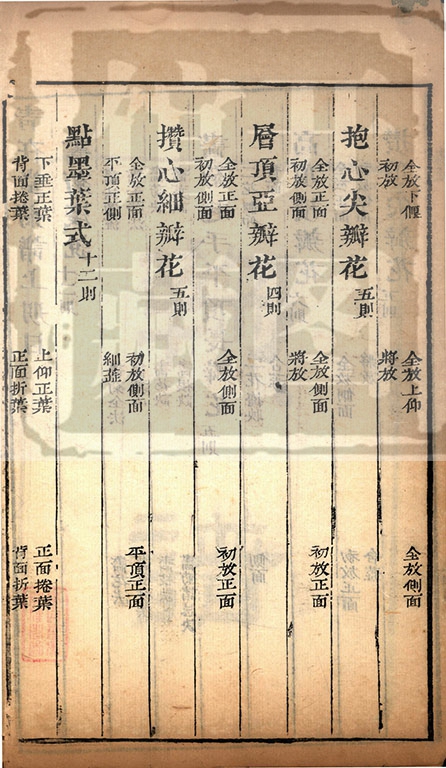 全放下偃　全放上仰　全放側面
初放　將放
抱心尖瓣花 五則
全放正面　全放側面　初放正面
初放側面　將放
層頂亞瓣花 四則
全放正面　全放側面　初放正面
初放側面
攢心細瓣花 五則
全放正面　初放側面　平頂正面
平頂正側　細蕋
點墨葉式 十二則
下垂正葉　上仰正葉　正面捲葉
背面捲葉　正面折葉　背面折葉